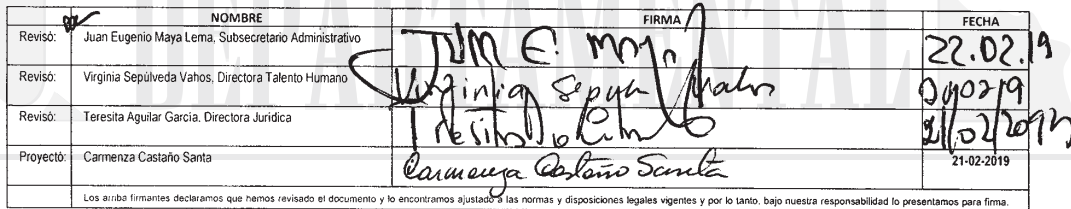 DEPARTAMENTAL
NOMBRE FIRMA FECHA
Revisó: Juan Eugenio Maya Lema, Subsecretario Administrativo JUAN E. MAYA 22.02.19
Revisó: Virginia Sepúlveda Vahos, Directora Talento Humano Virginia Sepulv Vahos
Revisó: Teresita Aguilar García, Directora Jurídica Teresita
Proyectó: Carmenza Castaño Santa Carmenza Castaño Santa 21-02-2019
Los arriba firmantes declaramos que hemos revisado el documento y lo encontramos ajustado a las normas y disposiciones legales vigentes y por lo tanto, bajo nuestra responsabilidad lo presentamos para firma.